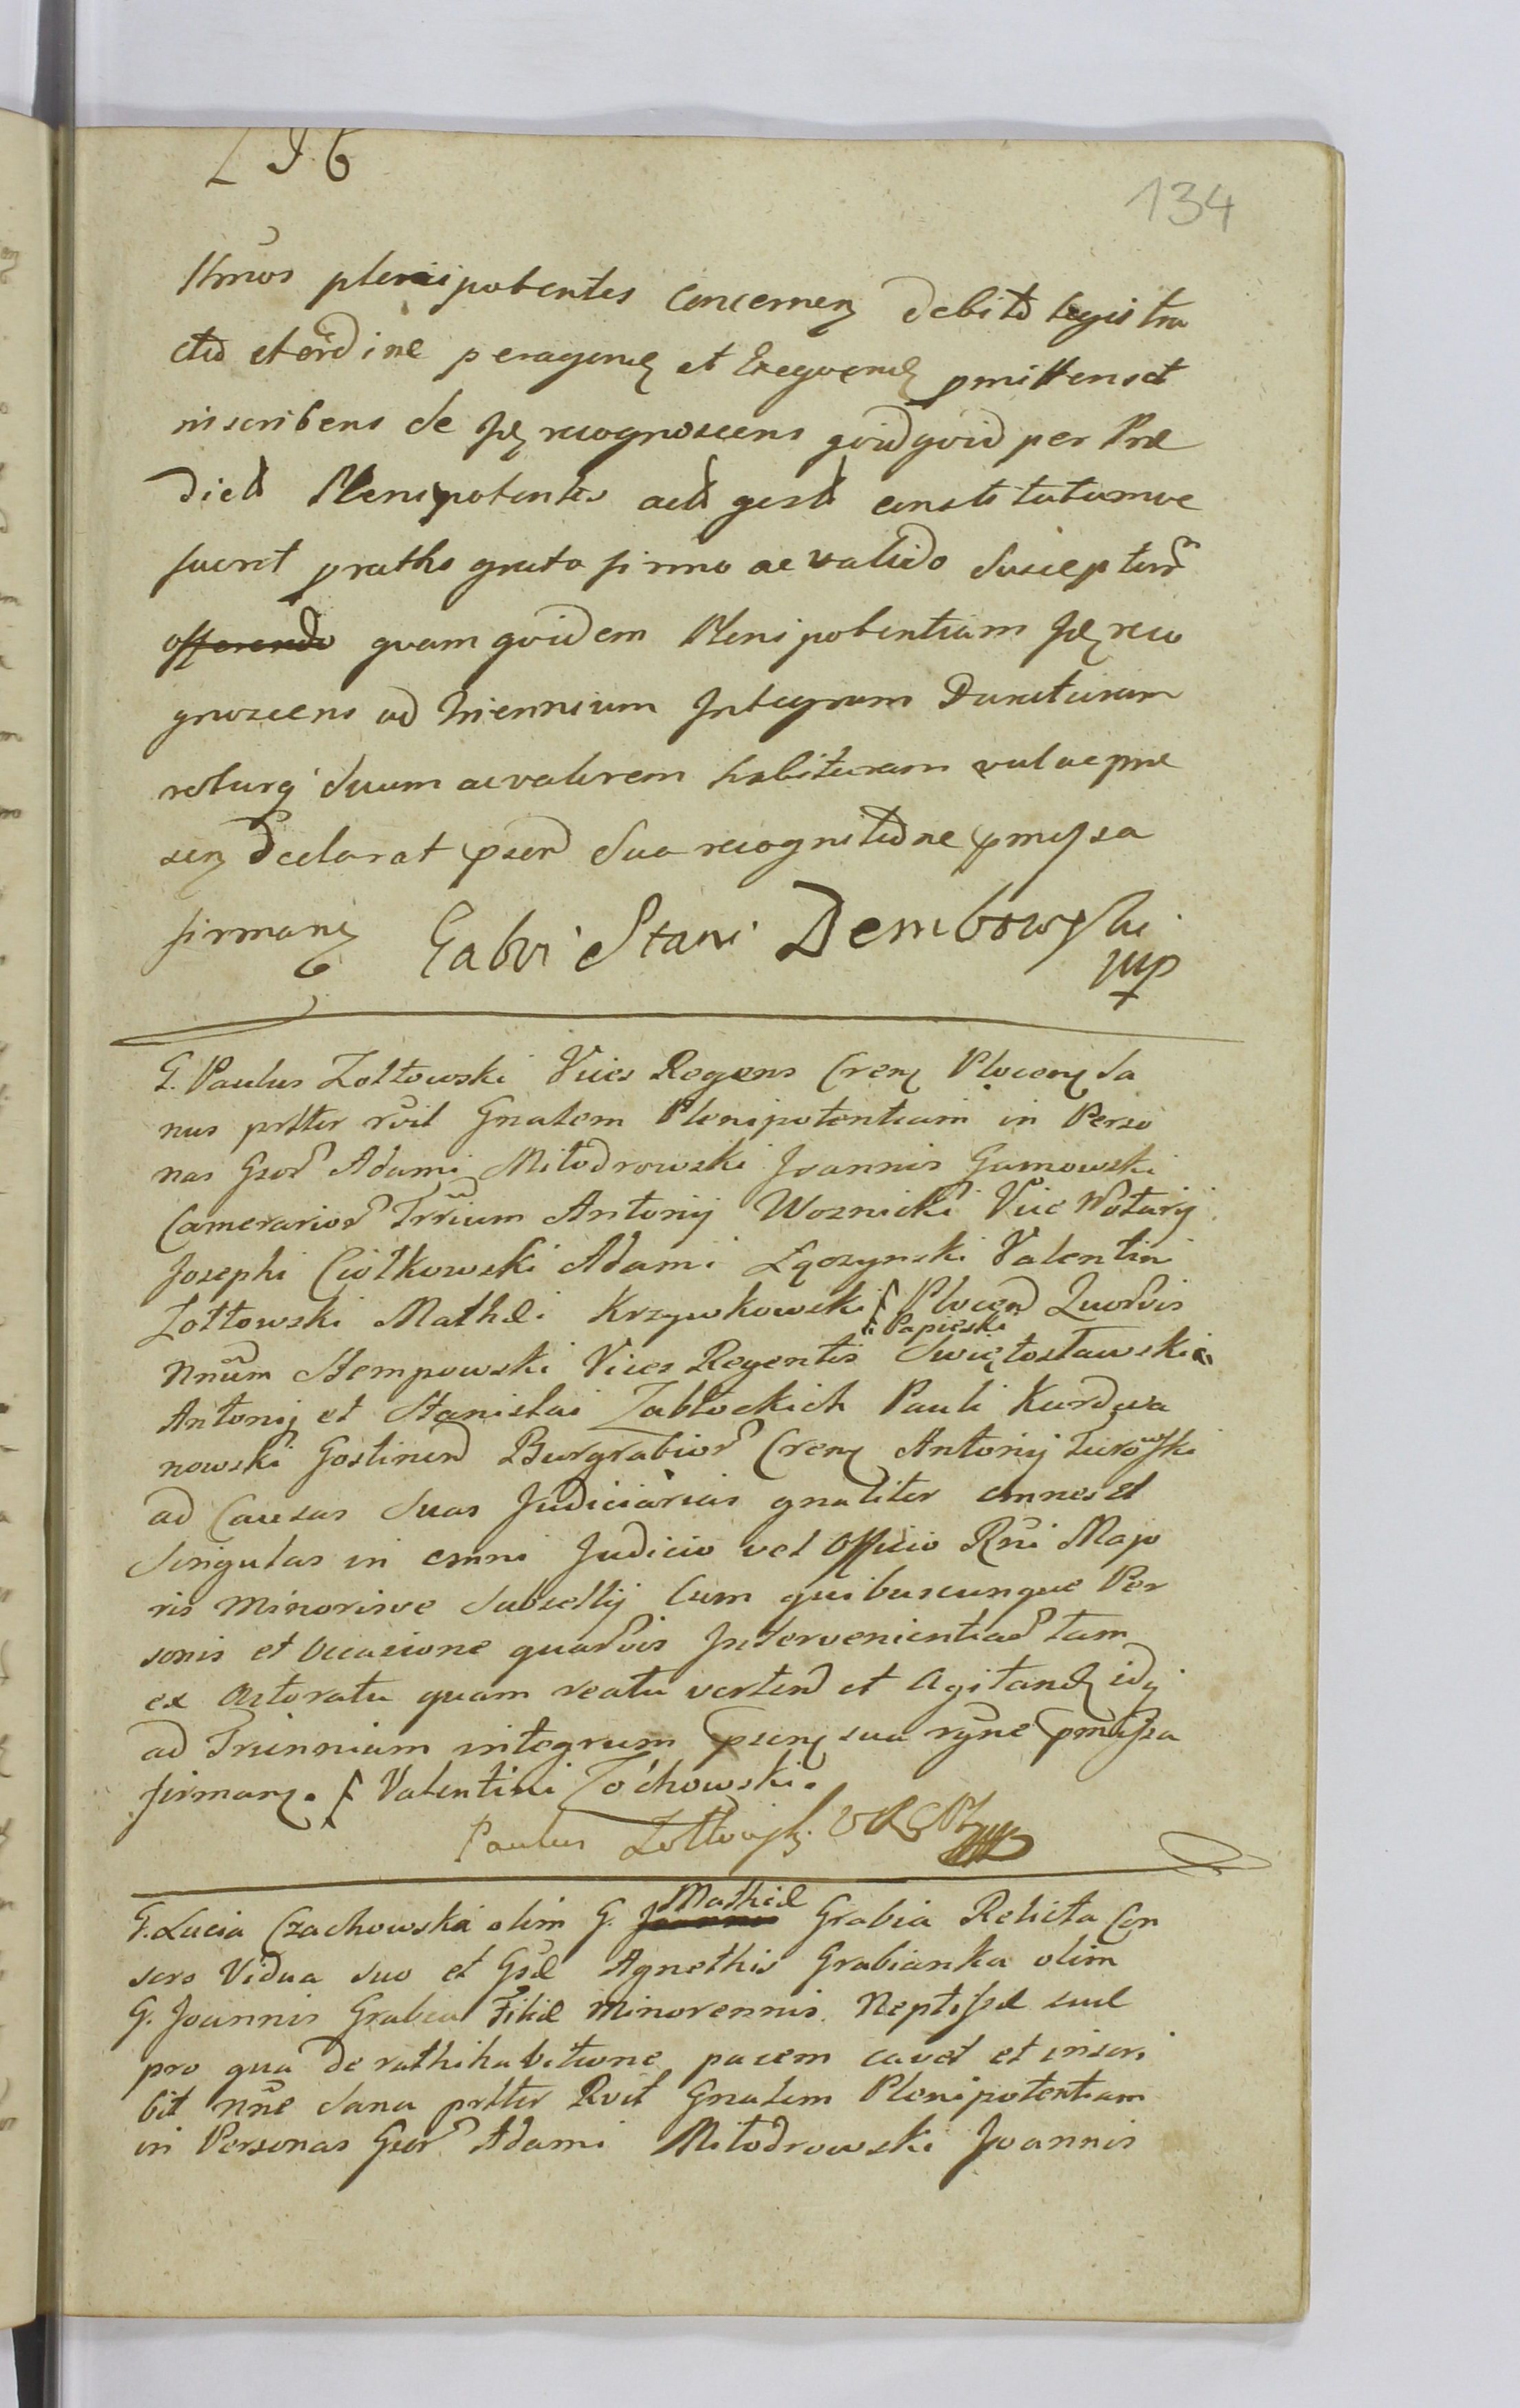 134
plenipotentes Concernen debito legis tra
ctu et ordine peragend et Exequend pmittens et
inscribens de se recognoscens quidquid per Præ
dictos Plenipotentes actu gestu constitutumve
fuerit pratho grato firmo ac valido Suscepturū
offerendo quam quidem Plenipotentiam se reco
gnoscens ad triennium Integrum Duraturam
roburq suum ac valorem habituram vult ac præ
sen declarat psen Sua recognitione pmissa
firman Gabri Stani Dembowski
mp
G. Paulus Zołtowski Vices Regens Cren Plocen Sa
nus prtter rvit Gnalem Plenipotentiam in Perso
nas Gsor Adami Miłodrowski Joannis Gumowski
Camerarior Trrium Antonij Woznicki Vice Notarij
Josephi Ciołkowski Adami Łęczynski Valentin
Zołtowski Mathæi Krzywkowski Plocen Quorvis
i Papieski
Nnum Stempowski Vices Regentis Swiętosławski
Antonij et Stanislai Zabłockich Pauli Kurdwa
nowski Gostinen Burgrabior Cren Antonij Turowski
ad Causas Suas Judiciarias gnaliter omnes et
Singulas in omni Judicio vel Officio Rni Majo
ris Minorisve Subsellij Cum quibuscunque Per
sonis et Occasione quarvis Intervenientiar tam
ex Actoratu quam reatu verten et Agitand idq
ad Triennium integrum psenq sua rgne pmissa
firman. Valentini Zochowski.
Paulus Zołtowski VRCPł mp
G. Lucia Czachowska olim G. Joannis Mathiæ Grabia Relicta Con
sors Vidua suo et Gsæ Agnethis Grabianka olim
G. Joannis Grabia Filiæ Minorennis Neptissæ suæ
pro qua de rathihabitione pacem cavet et inscri
bit nne Sana prtter Rvit Gnalem Plenipotentiam
in Personas Gsor Adami Miłodrowski Joannis